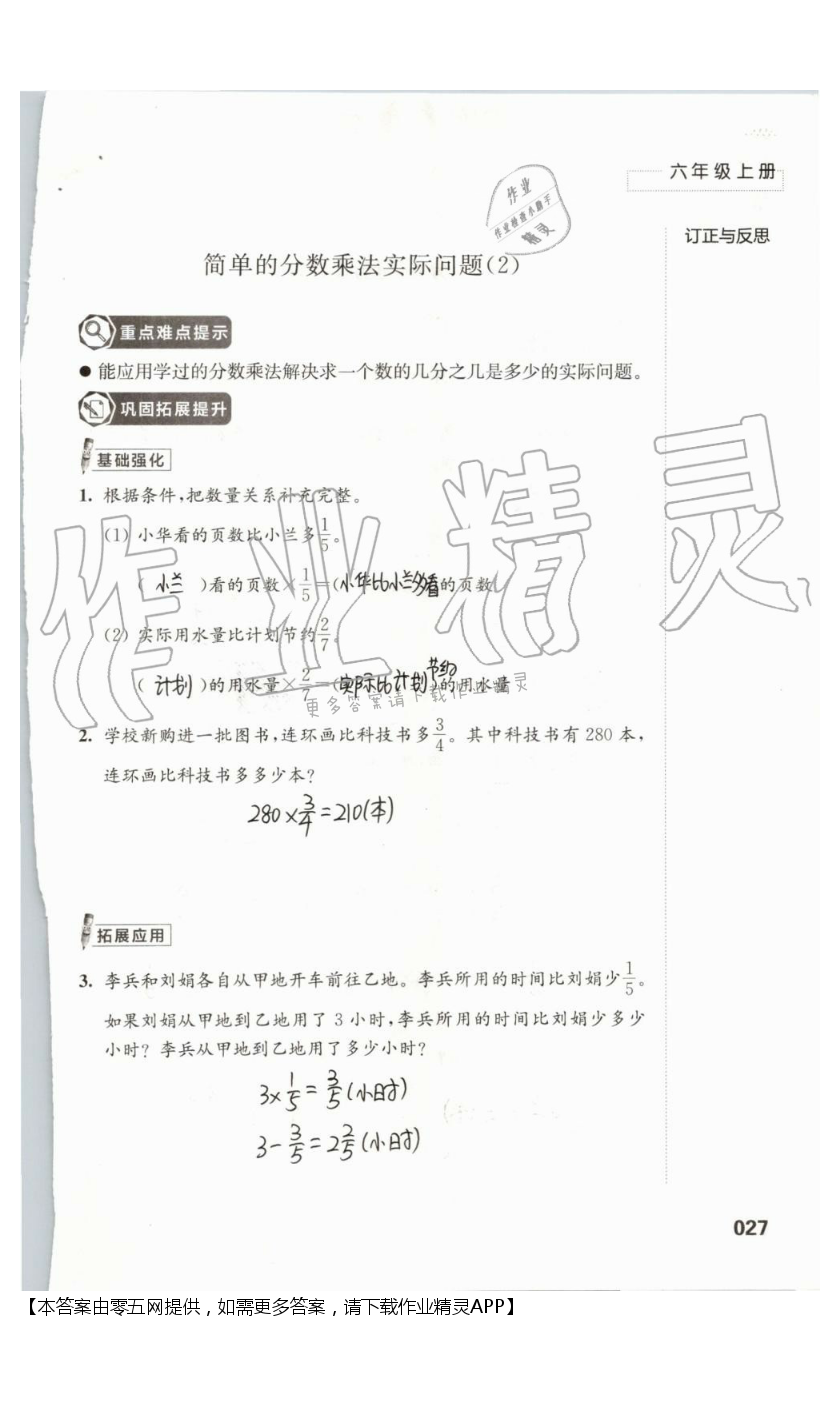 六年级上册
作业
作业检查小助手
精灵
订正与反思
简单的分数乘法实际问题(2)
重点难点提示
● 能应用学过的分数乘法解决求一个数的几分之几是多少的实际问题。
巩固拓展提升
基础强化
1. 根据条件,把数量关系补充完整。
(1) 小华看的页数比小兰多1/5。
( 小兰 )看的页数×1/5=(小华比小兰多看的页数
(2) 实际用水量比计划节约2/7。
( 计划 )的用水量×2/7=(实际比计划节约)的用水量
作业精灵
更多答案请下载作业精灵
2. 学校新购进一批图书,连环画比科技书多3/4。其中科技书有 280 本,
连环画比科技书多多少本?
280×3/4=210(本)
拓展应用
3. 李兵和刘娟各自从甲地开车前往乙地。李兵所用的时间比刘娟少1/5。
如果刘娟从甲地到乙地用了 3 小时,李兵所用的时间比刘娟少多少
小时? 李兵从甲地到乙地用了多少小时?
3×1/5=3/5(小时)
3-3/5=2 2/5(小时)
027
【本答案由零五网提供，如需更多答案，请下载作业精灵APP】